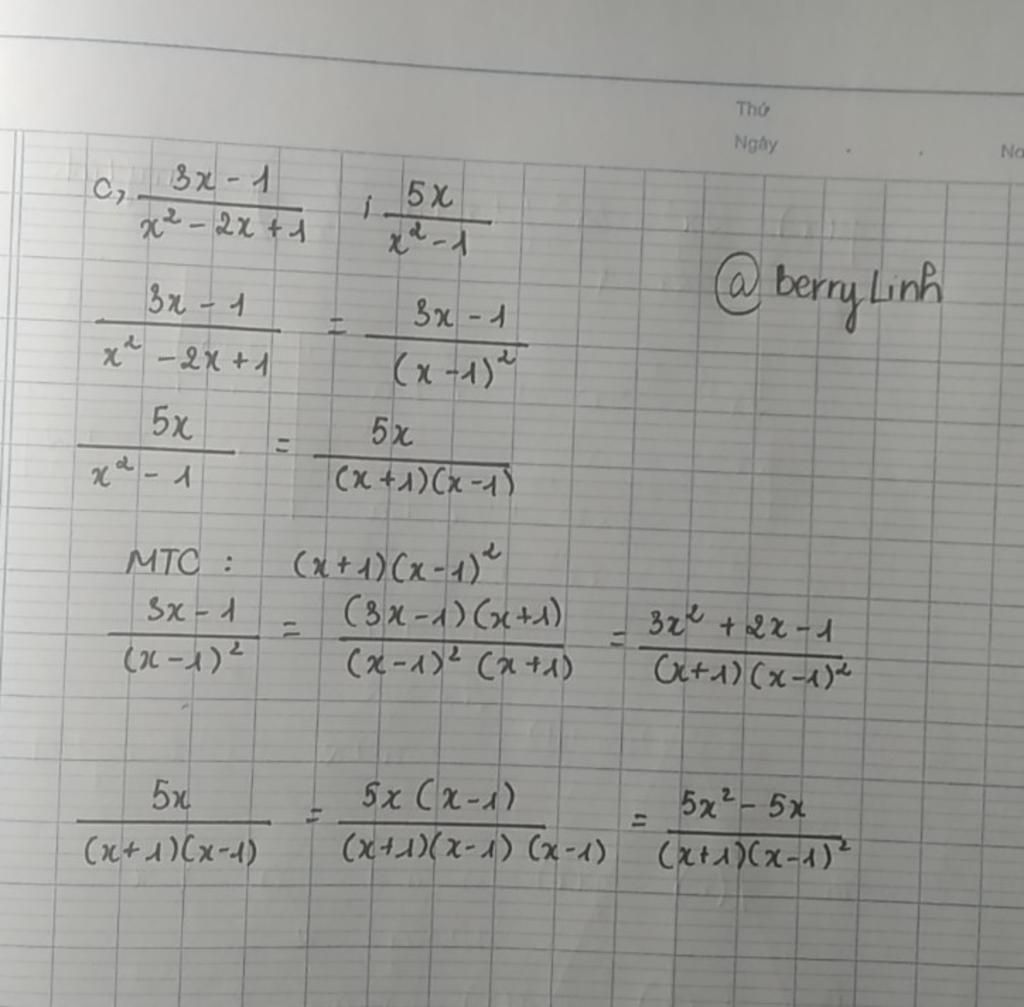 Thứ
Ngày
No
c, \frac{3x - 1}{x^2 - 2x + 1} ; \frac{5x}{x^2 - 1}
@berryLinh
\frac{3x - 1}{x^2 - 2x + 1} = \frac{3x - 1}{(x - 1)^2}
\frac{5x}{x^2 - 1} = \frac{5x}{(x + 1)(x - 1)}
MTC : (x + 1)(x - 1)^2
\frac{3x - 1}{(x - 1)^2} = \frac{(3x - 1)(x + 1)}{(x - 1)^2 (x + 1)} = \frac{3x^2 + 2x - 1}{(x + 1)(x - 1)^2}
\frac{5x}{(x + 1)(x - 1)} = \frac{5x (x - 1)}{(x + 1)(x - 1) (x - 1)} = \frac{5x^2 - 5x}{(x + 1)(x - 1)^2}